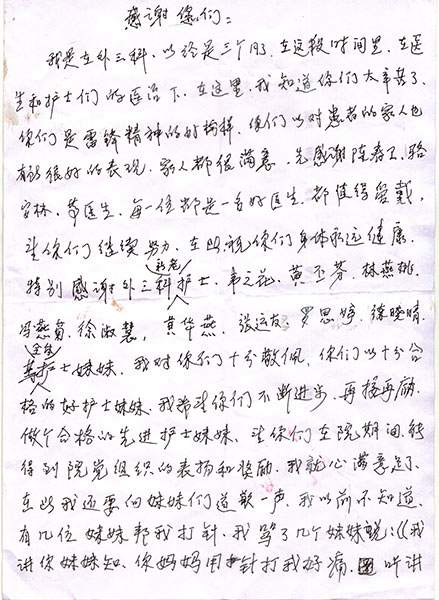 感谢你们：
我是在外三科，以经是三个月，在这段时间里，在医
生和护士们的医治下，在这里，我知道你们太辛苦了，
你们是雷锋精神的好榜样，你们以对患者的家人也
有很好的表现，家人都很满意，先感谢陈春工、骆
安林、等医生，每一位都是一名好医生，都值得爱戴，
望你们继续努力，在此祝你们身体永远健康，
特别感谢外三科护士，韦之花、黄丕芬、林燕桃、
冯燕菊、徐淑慧、黄华燕、张运友、罗思婷、徐晓晴
全体
等护士妹妹，我对你们十分敬佩，你们以十分合
格的好护士妹妹，我希望你们不断进步，再接再励，
做个合格的先进护士妹妹，望你们在院期间，能
得到院党组织的表扬和奖励，我就心满意足了，
在此我还要向妹妹们道歉一声，我以前不知道，
有几位妹妹帮我打针，我骂了几个妹妹说：《我
讲你妹妹知、你妈妈用针打我好痛，叫讲